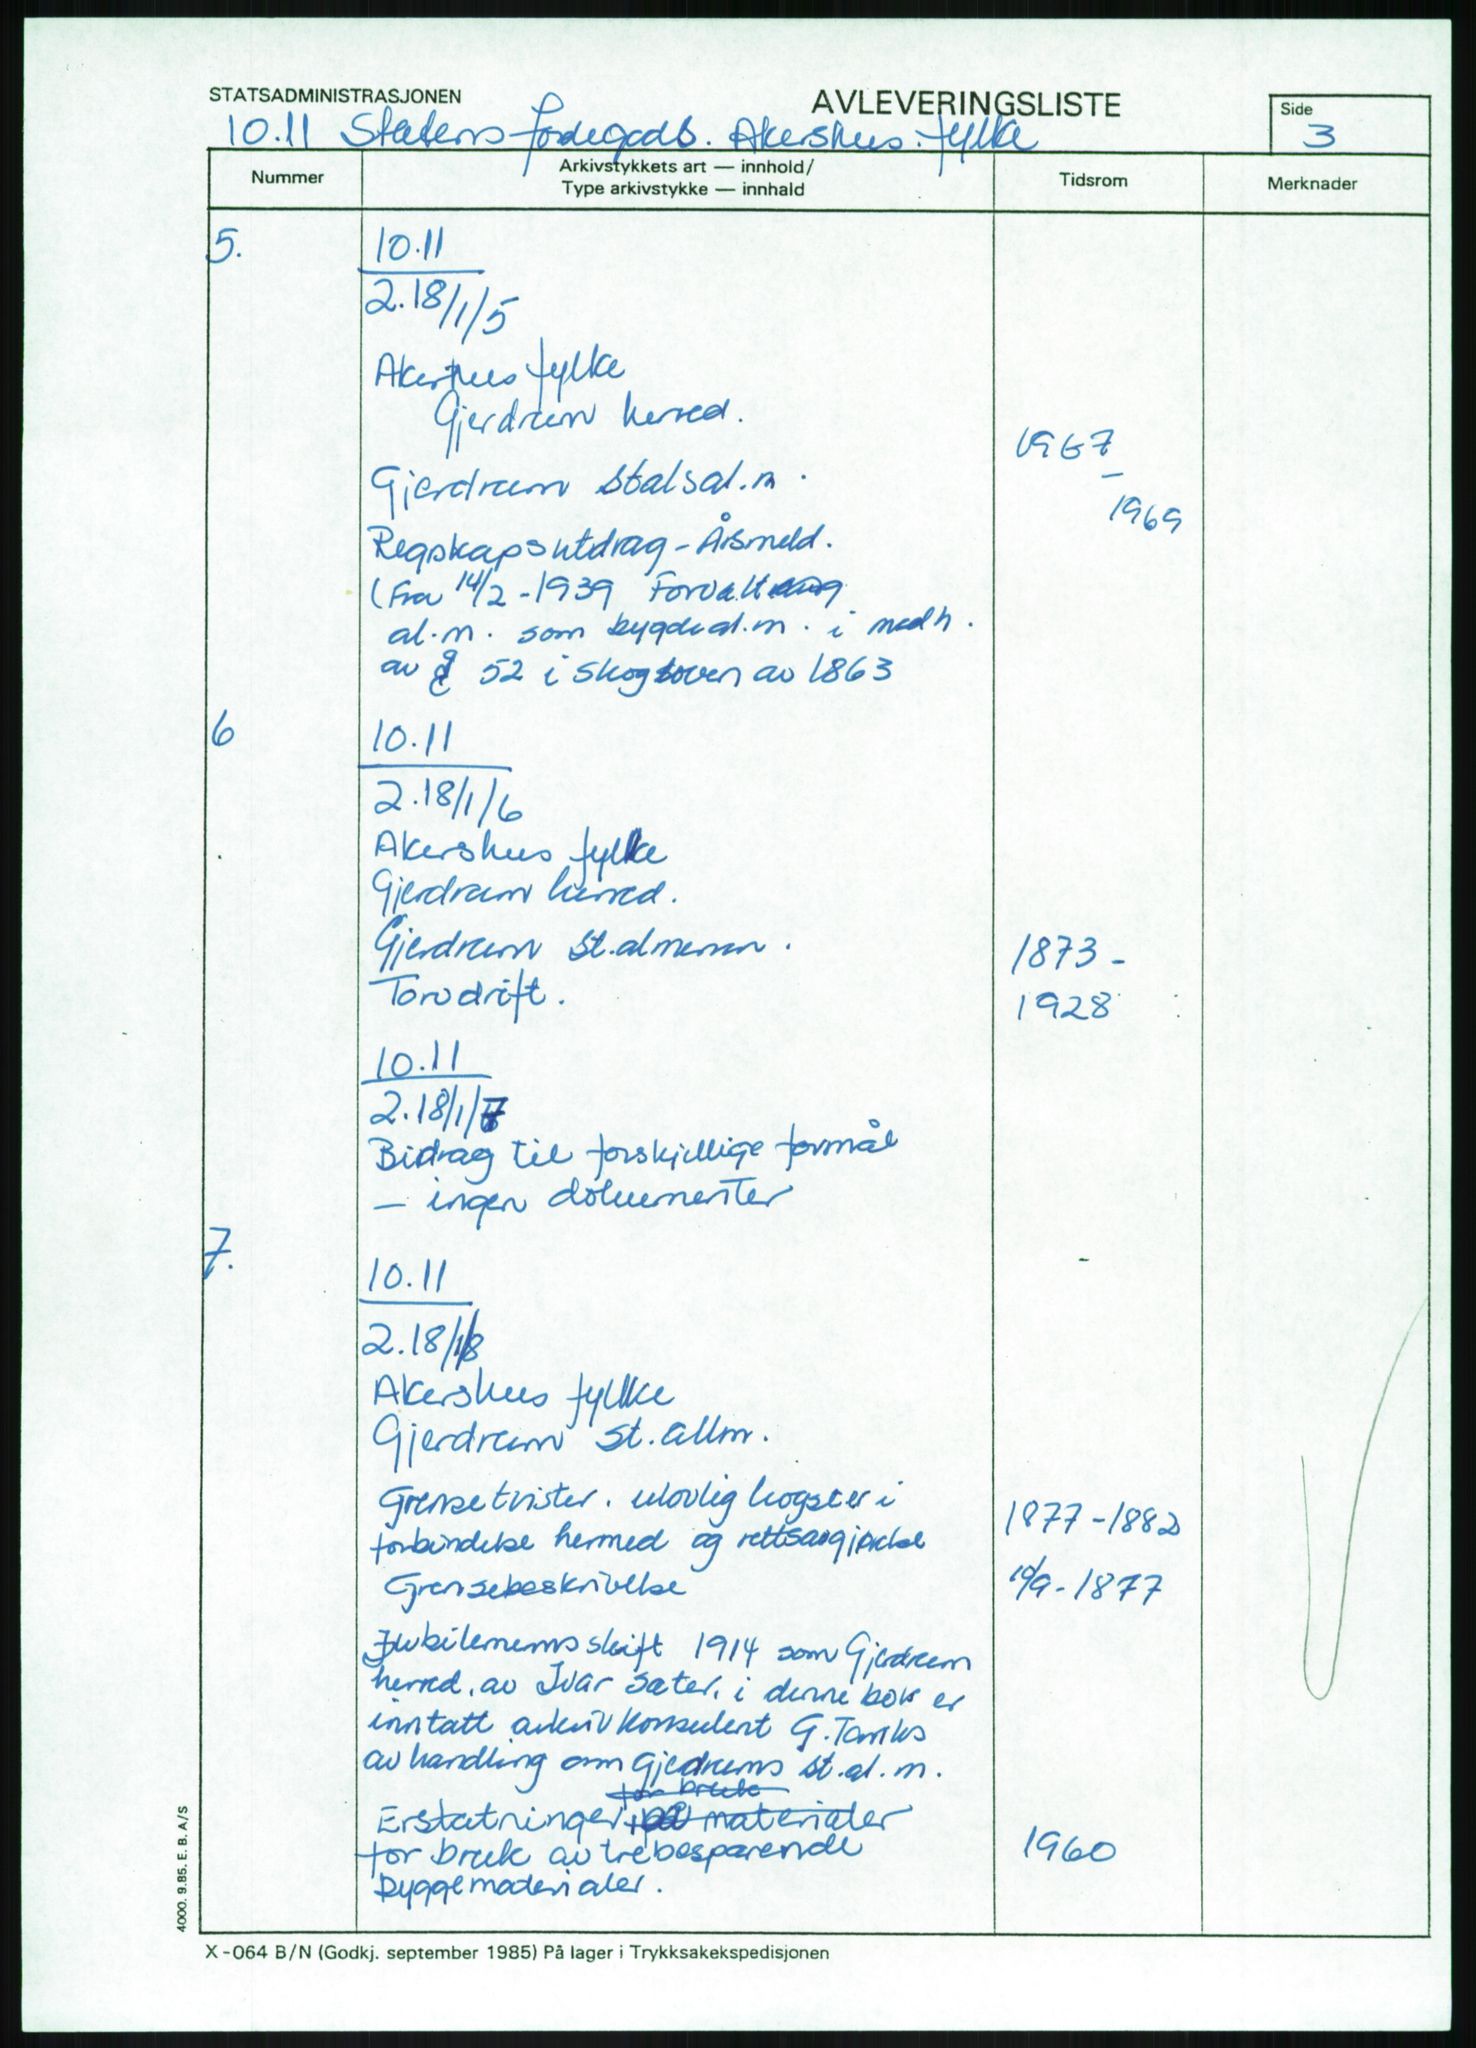 STATSADMINISTRASJONEN
AVLEVERINGSLISTE
Side
3
10.11 Statens jordegods. Akershus fylke
Nummer
Arkivstykkets art — innhold/
Type arkivstykke — innhald
Tidsrom
Merknader
5.
10.11
2.18/1/5
Akershus fylke
Gjerdrum herred.
1967
–
1969
Gjerdrum statsal.m.
Regnskapsutdrag - Årsmeld.
(Fra 14/2-1939 Forvaltning
al.m. som bygdeal.m. i medh.
av § 52 i skogloven av 1863
6
10.11
2.18/1/6
Akershus fylke
Gjerdrum herred.
Gjerdrum st.almenn.
1873-
Torvdrift.
1928
10.11
2.18/1/7
Bidrag til forskjellige formål
— ingen dokumenter
7.
10.11
2.18/1/8
Akershus fylke
Gjerdrum st.allm.
Grensetvister. ulovlig hogster i
forbindelse hermed og rettsavgjørelse
1877-1882
Grensebeskrivelse
10/9-1877
Jubileumsskift 1914 som Gjerdrum
herred, av Ivar Sæter, i denne bok er
inntatt arkivkonsulent G. Tanks
avhandling om Gjedrums st.al.m.
for bruk
Erstatninger på materialer
for bruk av trebesparende
1960
byggematerialer.
4000. 9.85. E. B. A/S
X-064 B/N (Godkj. september 1985) På lager i Trykksakekspedisjonen